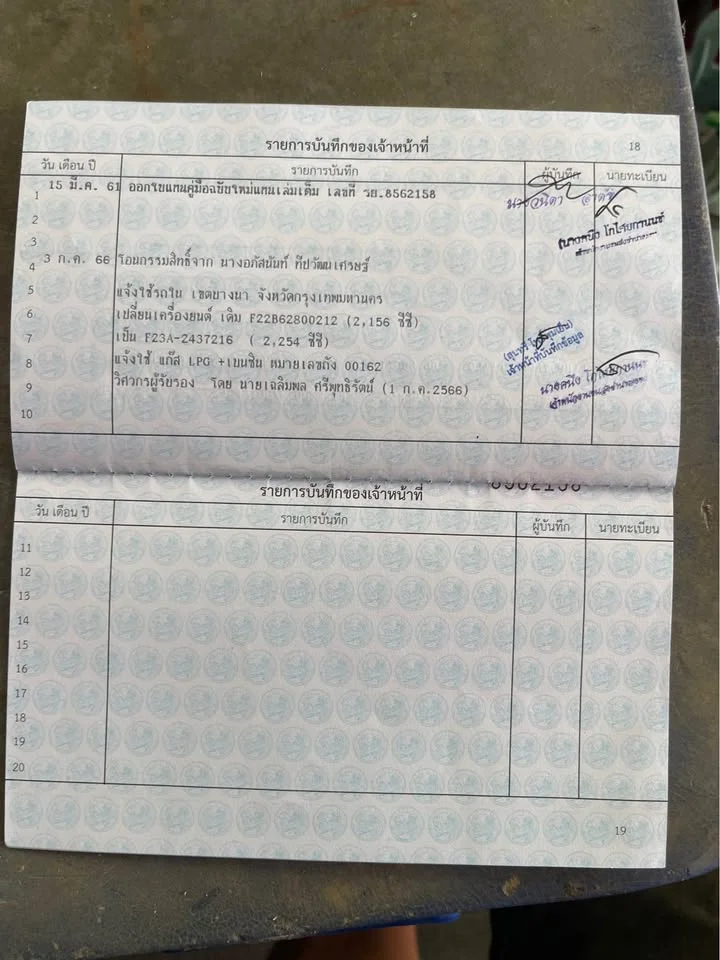 รายการบันทึกของเจ้าหน้าที่ 18
วัน เดือน ปี รายการบันทึก ผู้บันทึก นายทะเบียน
1 15 มี.ค. 61 ออกใบแทนคู่มือฉบับใหม่แทนเล่มเดิม เลขที่ รย.8562158
2
3
4 3 ก.ค. 66 โอนกรรมสิทธิ์จาก นางอภัสนันท์ ทีปวัฒนเศรษฐ์
5 แจ้งใช้รถใน เขตบางนา จังหวัดกรุงเทพมหานคร
6 เปลี่ยนเครื่องยนต์ เดิม F22B62800212 (2,156 ซีซี)
7 เป็น F23A-2437216 ( 2,254 ซีซี)
8 แจ้งใช้ แก๊ส LPG +เบนซิน หมายเลขถัง 00162
9 วิศวกรผู้รับรอง โดย นายเฉลิมพล ศรีพุทธิรัตน์ (1 ก.ค.2566)
10
เจ้าหน้าที่บันทึกข้อมูล
8562158
รายการบันทึกของเจ้าหน้าที่
วัน เดือน ปี รายการบันทึก ผู้บันทึก นายทะเบียน
11
12
13
14
15
16
17
18
19
20
19